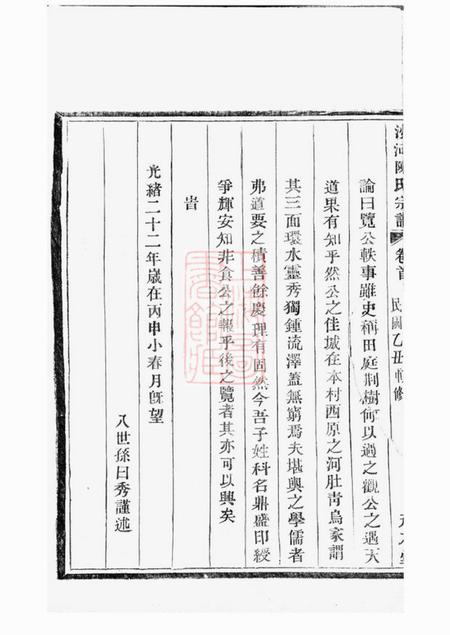 陳氏宗譜 卷首 民國乙丑輯修
論曰覽公軼事雖史稱田庭荆樹何以過之觀公之遇天
道果有知乎然公之佳城在本村西原之河肚靑烏家謂
其三面環水靈秀獨鍾流澤蓋無窮焉夫堪輿之學儒者
弗道要之積善餘慶理有固然今吾子姓科名鼎盛印綬
爭輝安知非食公之報乎後之覽者其亦可以興矣
旹
光緒二十二年歲在丙申小春月旣望
八世孫曰秀謹述